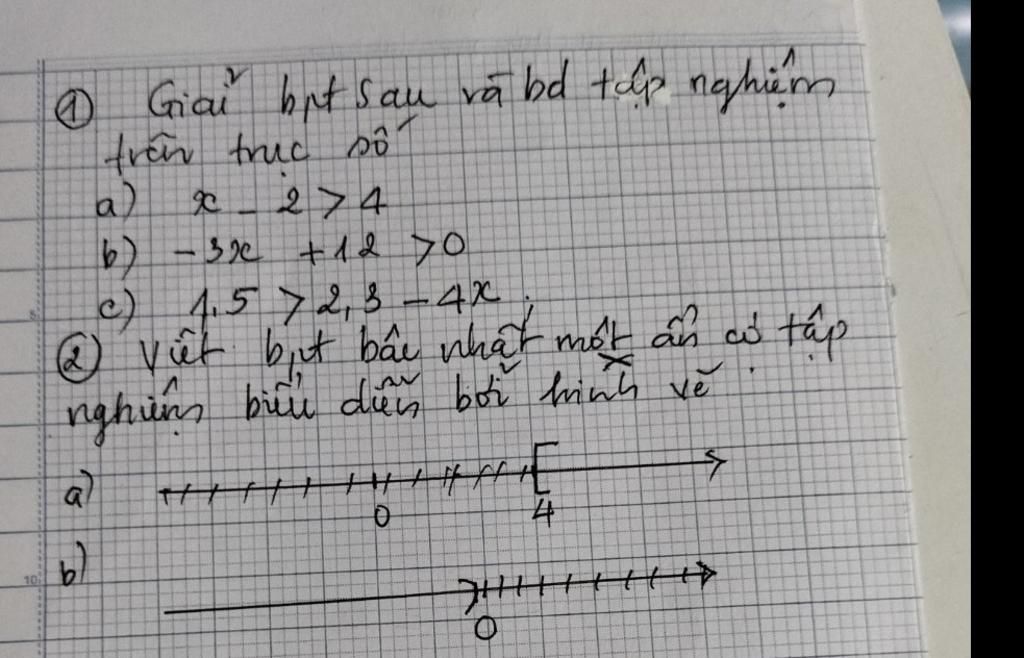 ① Giải bpt sau và bd tập nghiệm
trên trục số
a) x - 2 > 4
b) -3x + 12 > 0
c) 1,5 > 2,3 - 4x.
② Viết bpt bậc nhất một ẩn có tập
nghiệm biểu diễn bởi hình vẽ.
a)
0 4
b)
0
5
10